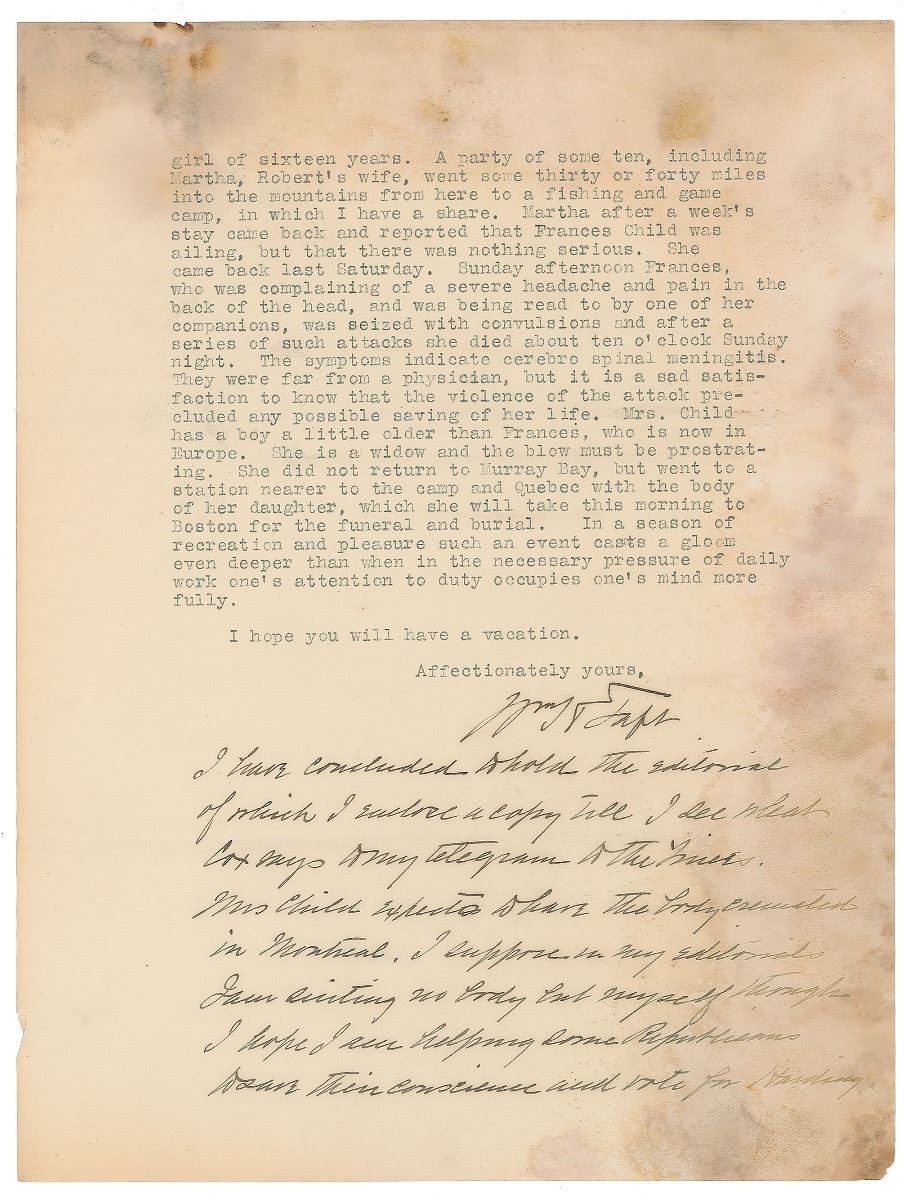 girl of sixteen years.  A party of some ten, including
Martha, Robert's wife, went some thirty or forty miles
into the mountains from here to a fishing and game
camp, in which I have a share.  Martha after a week's
stay came back and reported that Frances Child was
ailing, but that there was nothing serious.  She
came back last Saturday.  Sunday afternoon Frances,
who was complaining of a severe headache and pain in the
back of the head, and was being read to by one of her
companions, was seized with convulsions and after a
series of such attacks she died about ten o'clock Sunday
night.  The symptoms indicate cerebro spinal meningitis.
They were far from a physician, but it is a sad satis-
faction to know that the violence of the attack pre-
cluded any possible saving of her life.  Mrs. Child
has a boy a little older than Frances, who is now in
Europe.  She is a widow and the blow must be prostrat-
ing.  She did not return to Murray Bay, but went to a
station nearer to the camp and Quebec with the body
of her daughter, which she will take this morning to
Boston for the funeral and burial.   In a season of
recreation and pleasure such an event casts a gloom
even deeper than when in the necessary pressure of daily
work one's attention to duty occupies one's mind more
fully.
I hope you will have a vacation.
Affectionately yours,
Wm H Taft
I have concluded to hold the editorial
of which I enclose a copy till I see what
Cox says to my telegram to the Times.
Mrs Child expects to have the body cremated
in Montreal. I suppose in my editorials
I am suiting no body but myself though
I hope I am helping some Republicans
to save their conscience and vote for Harding